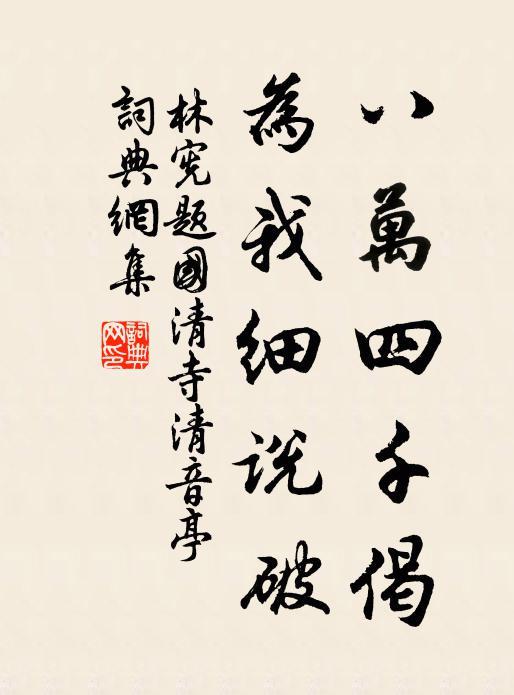 八萬四千偈
為我細說破
林宪題國清寺清音亭
詞典網集
詞典網印